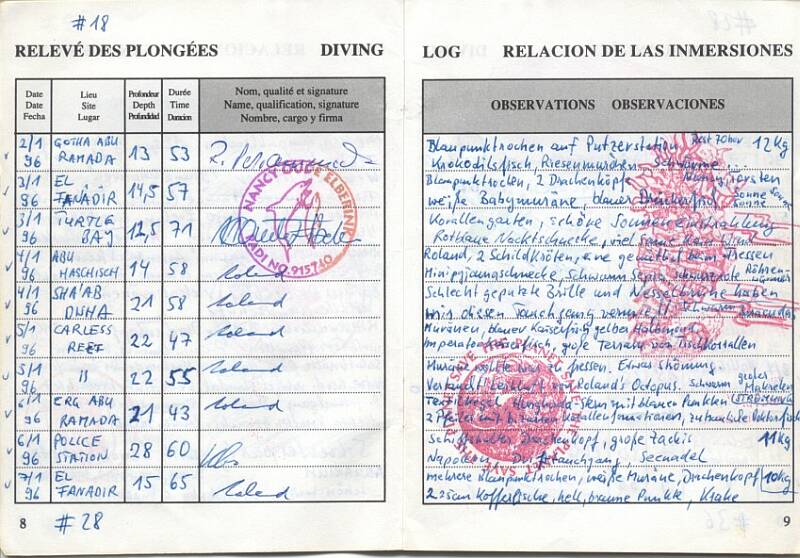 #18
RELEVÉ DES PLONGÉES DIVING
Date Date Fecha
Lieu Site Lugar
Profondeur Depth Profundidad
Durée Time Duracion
Nom, qualité et signature
Name, qualification, signature
Nombre, cargo y firma
2/1 96 GOTHA ABU RAMADA 13 53
3/1 96 EL FANADIR 14,5 57
3/1 96 TURTLE BAY 12,5 71
4/1 96 ABU HASCHISCH 14 58 Roland
4/1 96 SHA'AB DNHA 21 58 Roland
5/1 96 CARLESS REEF 22 47 Roland
5/1 96 " 22 55 Roland
6/1 96 ERG ABU RAMADA 21 43 Roland
6/1 96 POLICE STATION 28 60
7/1 96 EL FANADIR 15 65 Roland
NANCY OUDE ELBERINK
PADI NO. 915740
8 #28
LOG RELACION DE LAS INMERSIONES
OBSERVATIONS OBSERVACIONES
Blaupunktrochen auf Putzerstation Rest 70bar 12Kg
Krokodilsfisch, Riesenmuränen, Schwärme ...
Blaupunktrochen, 2 Drachenköpfe
weiße Babymuräne, blauer Drückerfisch Sonne
Korallengarten, schöne Sonneneinstrahlung
Rothaue Nacktschnecke, viel
Roland, 2 Schildkröten, eine gemütlich beim Fressen
Minipyjamaschnecke, Schwarm Sepia, Röhren-
Schlecht geputzte Brille und Nesselbrühe haben
mir diesen Tauchgang vermiest! Schwarm Barracudas
Muränen, blauer Kaiserfisch gelber Halbmond
Imperatorkaiserfisch, große Terrasse von Tischkorallen
Muräne wollte was zu fressen. Etwas Strömung
von Roland's Octopus. Schwarm großer Makrelen
mit blauen Punkten STRÖMUNG
2 Pfeiler mit Korallenformationen, zutrauliche Doktorfische
Schiffshalter Drachenkopf, große Zacki 11Kg
Napoleon Driftauchgang, Seenadel
mehrere Blaupunktrochen, weiße Muräne, Drachenkopf 10Kg
2 25cm Kofferfische, hell, braune Punkte, Krake
9